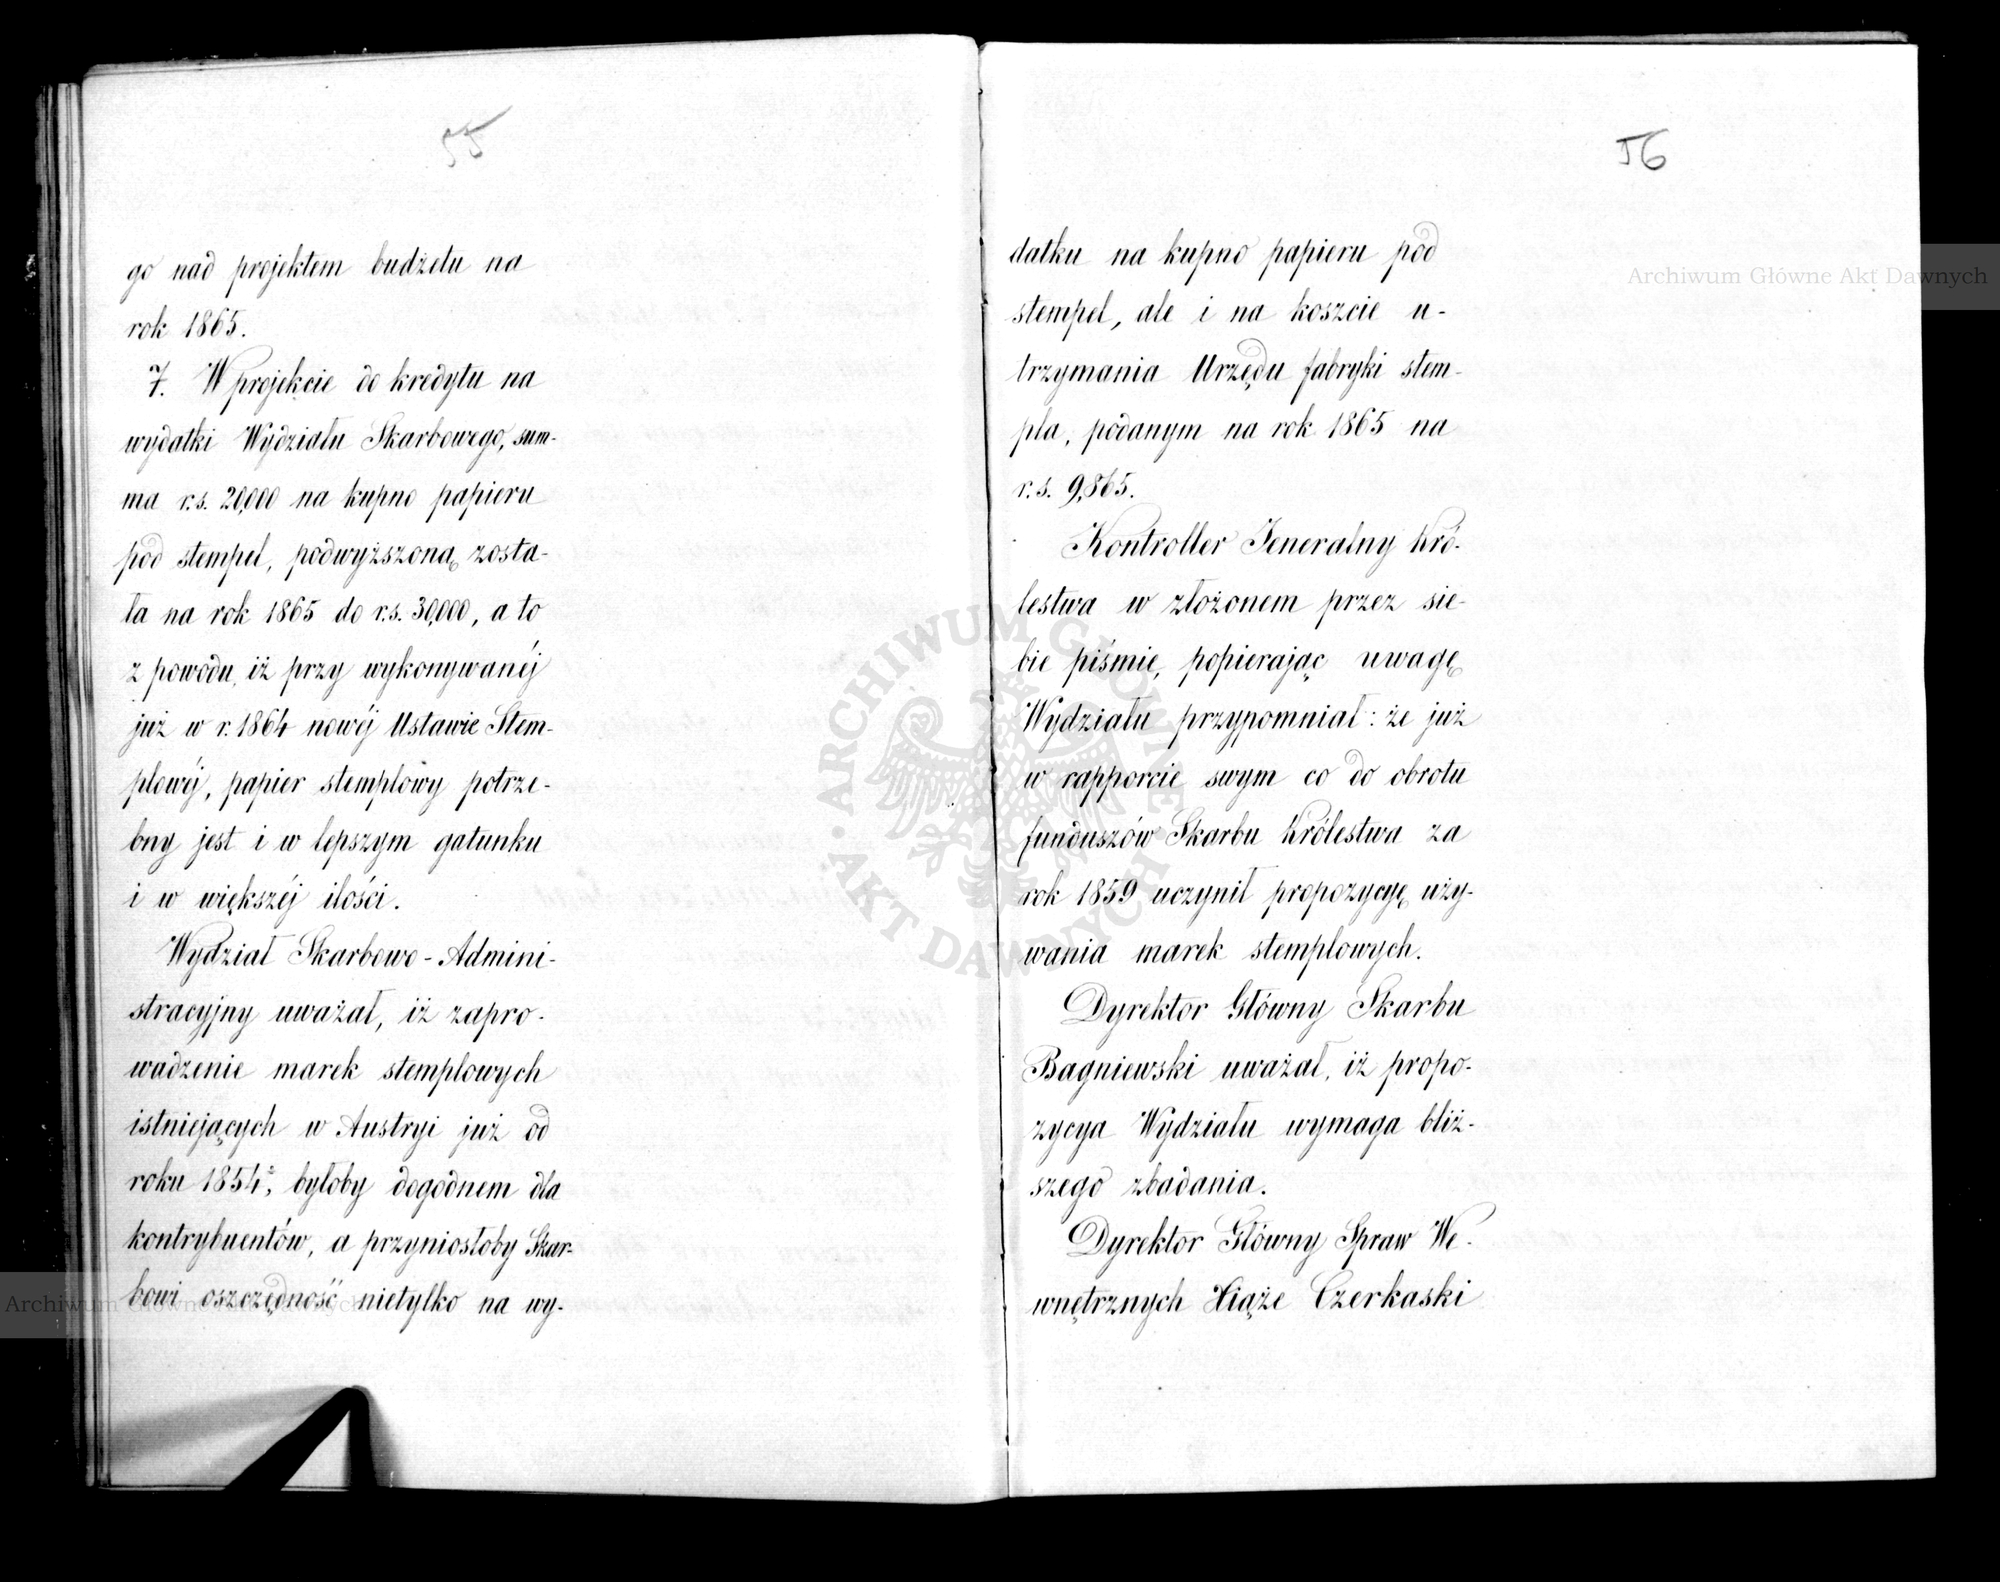 55
go nad projektem budżetu na
rok 1865.
7. W projekcie do kredytu na
wydatki Wydziału Skarbowego, sum-
ma r.s. 20,000 na kupno papieru
pod stempel, podwyższoną zosta-
ła na rok 1865 do r.s. 30,000, a to
z powodu, iż przy wykonywanéj
już w r. 1864 nowéj Ustawie Stem-
plowéj, papier stemplowy potrze-
bny jest i w lepszym gatunku
i w większéj ilości.
Wydział Skarbowo-Admini-
stracyjny uważał, iż zapro-
wadzenie marek stemplowych
istniejących w Austryi już od
roku 1854, byłoby dogodnem dla
kontrybuentów, a przyniosłoby Skar-
bowi oszczędność nietylko na wy-
56
datku na kupno papieru pod
stempel, ale i na koszcie u-
trzymania Urzędu fabryki stem-
pla, podanym na rok 1865 na
r.s. 9,865.
Kontroller Jeneralny Kró-
lestwa w złożonem przez sie-
bie piśmie, popierając uwagę
Wydziału przypomniał: że już
w rapporcie swym co do obrotu
funduszów Skarbu Królestwa za
rok 1859 uczynił propozycyę uży-
wania marek stemplowych.
Dyrektor Główny Skarbu
Bagniewski uważał, iż propo-
zycya Wydziału wymaga bliż-
szego zbadania.
Dyrektor Główny Spraw We-
wnętrznych Xiąże Czerkaski
Archiwum Główne Akt Dawnych
ARCHIWUM GŁÓWNE AKT DAWNYCH
Archiwum Główne Akt Dawnych